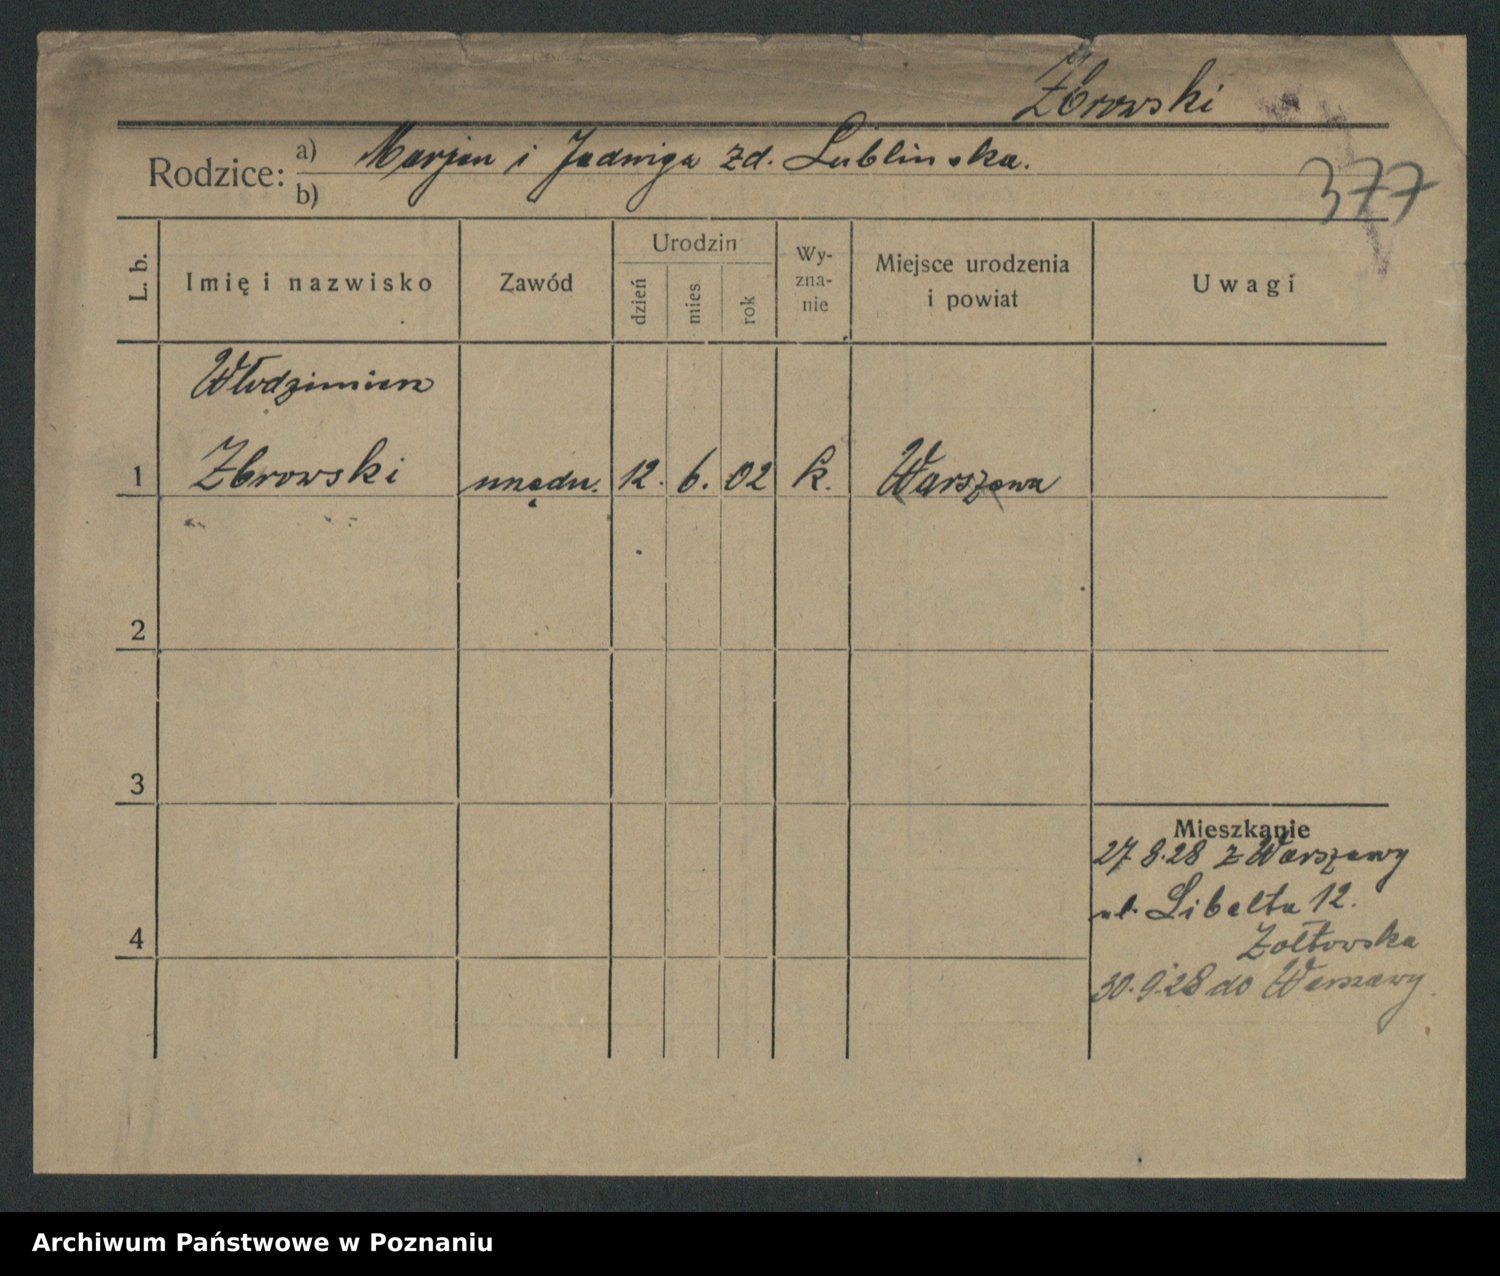 Zbrowski
Rodzice: a) Marjan i Jadwiga zd. Lublinska.
b)
377
L. b.
Imię i nazwisko
Zawód
Urodzin
dzień
mies.
rok
Wy-
zna-
nie
Miejsce urodzenia
i powiat
Uwagi
Włodzimierz
1 Zbrowski urzędn. 12. 6. 02 k. Warszawa
2
3
Mieszkanie
27 8.28 z Warszawy
ul. Libelta 12.
4
Żołtowska
30.9.28 do Warszawy
Archiwum Państwowe w Poznaniu